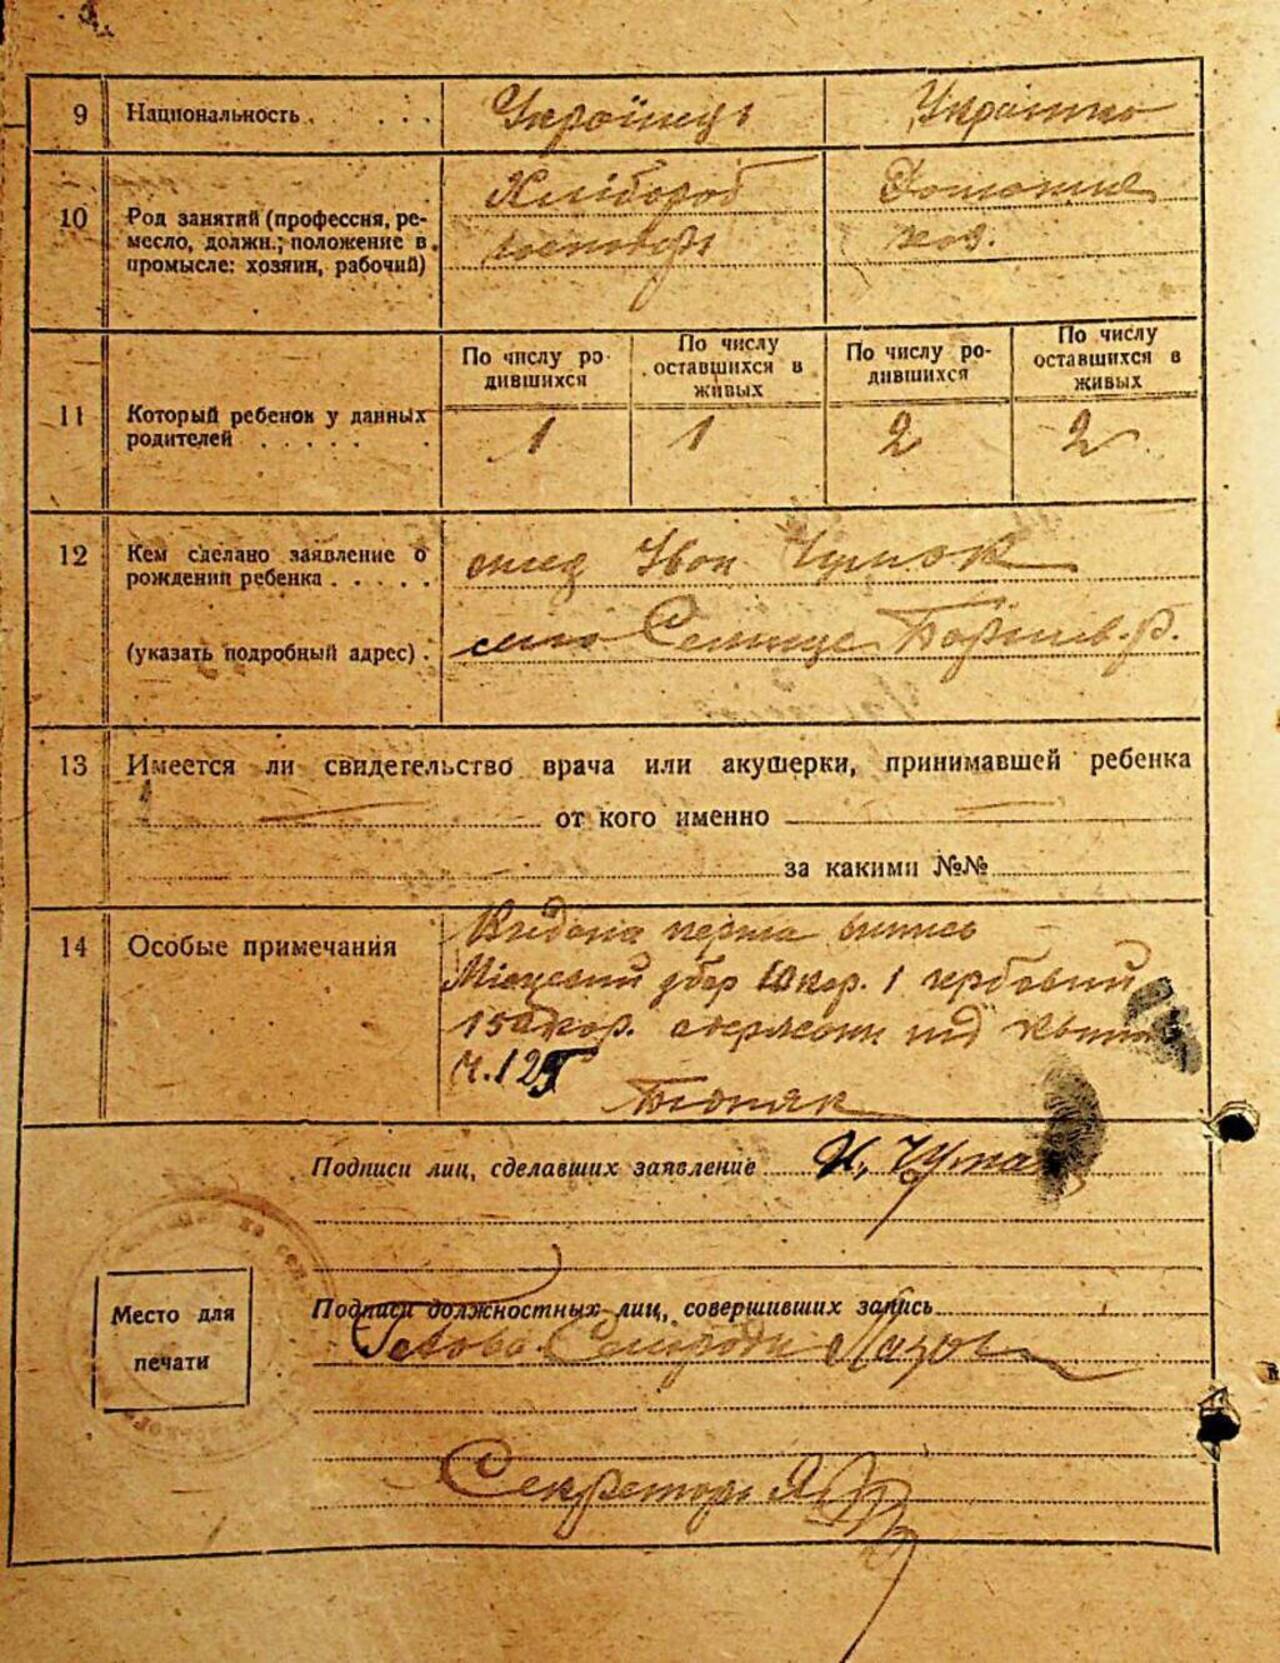 9 Национальность . . . . Українець Українка
10 Род занятий (профессия, ре-
месло, должн.; положение в
промысле: хозяин, рабочий)
Хлібороб Домашнє
господарь хоз.
По числу ро-
дившихся
По числу
оставшихся в
живых
По числу ро-
дившихся
По числу
оставшихся в
живых
11 Который ребенок у данных
родителей . . . . . .
1 1 2 2
12 Кем сделано заявление о
рождении ребенка . . . . .
Іван Чумак
(указать подробный адрес) .
село Селище Борщев. р.
13 Имеется ли свидетельство врача или акушерки, принимавшей ребенка
от кого именно
за какими №№
14 Особые примечания
Видана перша випись
Місцевий збор 10 кор. 1 гербовий
150 кор. одержани під
ч. 125
Бідняк
Подписи лиц, сделавших заявление И. Чумак
Место для
печати
Подписи должностных лиц, совершивших запись
Голова Сельради
Секретарь